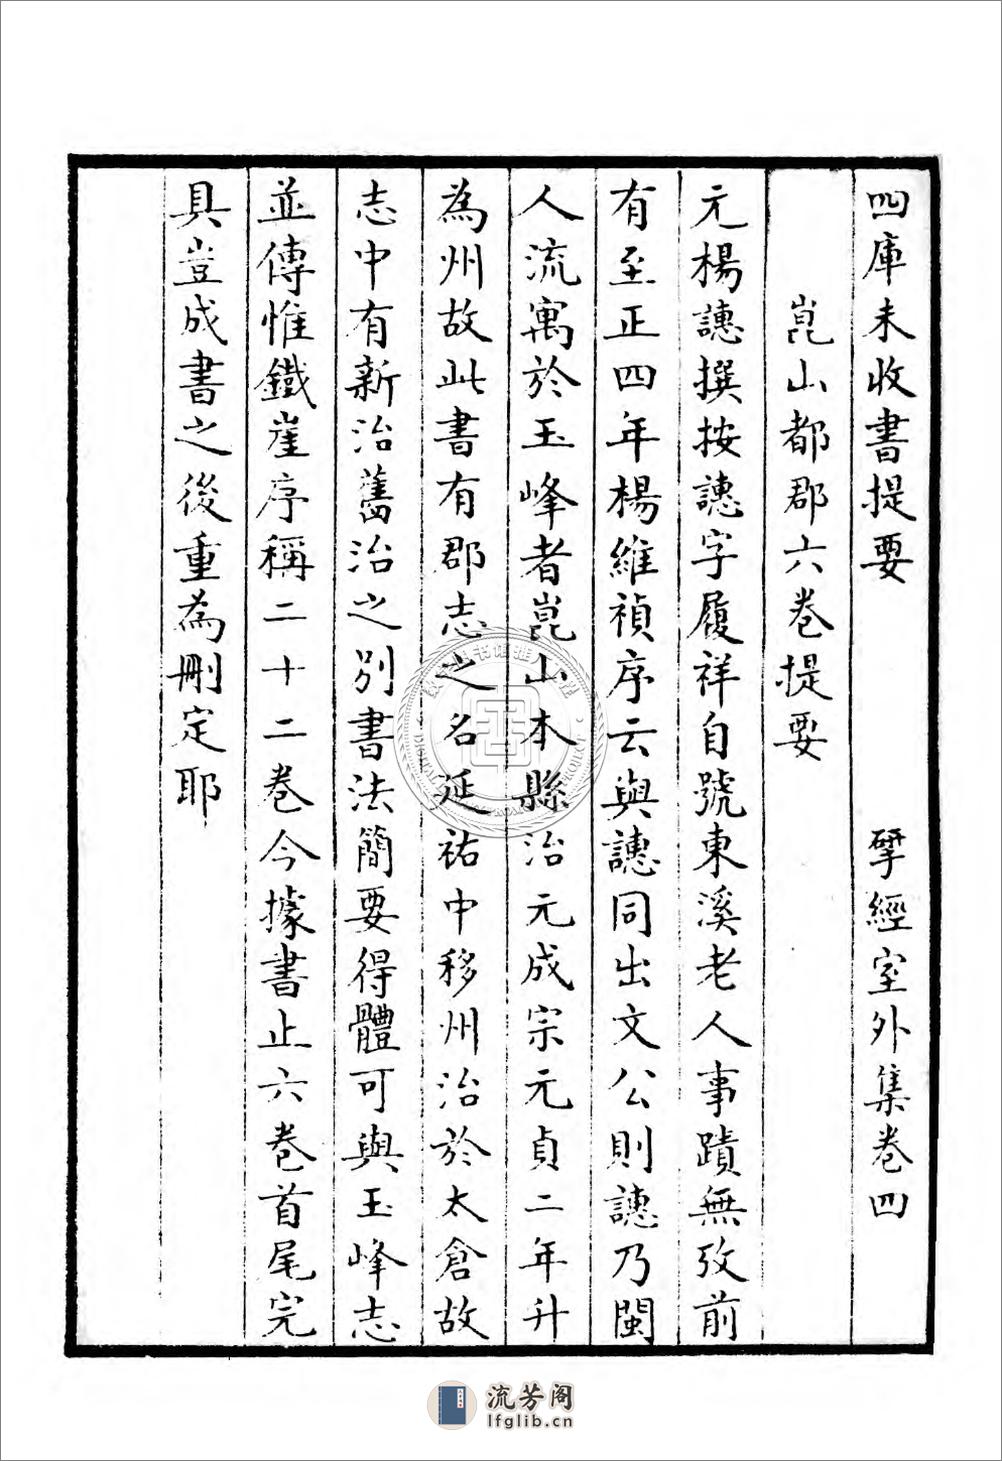 四庫未收書提要 揅經室外集卷四
崑山都郡六卷提要
元楊譓撰按譓字履祥自號東溪老人事蹟無攷前
有至正四年楊維禎序云與譓同出文公則譓乃閩
人流寓於玉峰者崑山本縣治元成宗元貞二年升
為州故此書有郡志之名延祐中移州治於太倉故
志中有新治舊治之別書法簡要得體可與玉峰志
並傳惟鐵崖序稱二十二卷今據書止六卷首尾完
具豈成書之後重為刪定耶
流芳阁
lfglib.cn